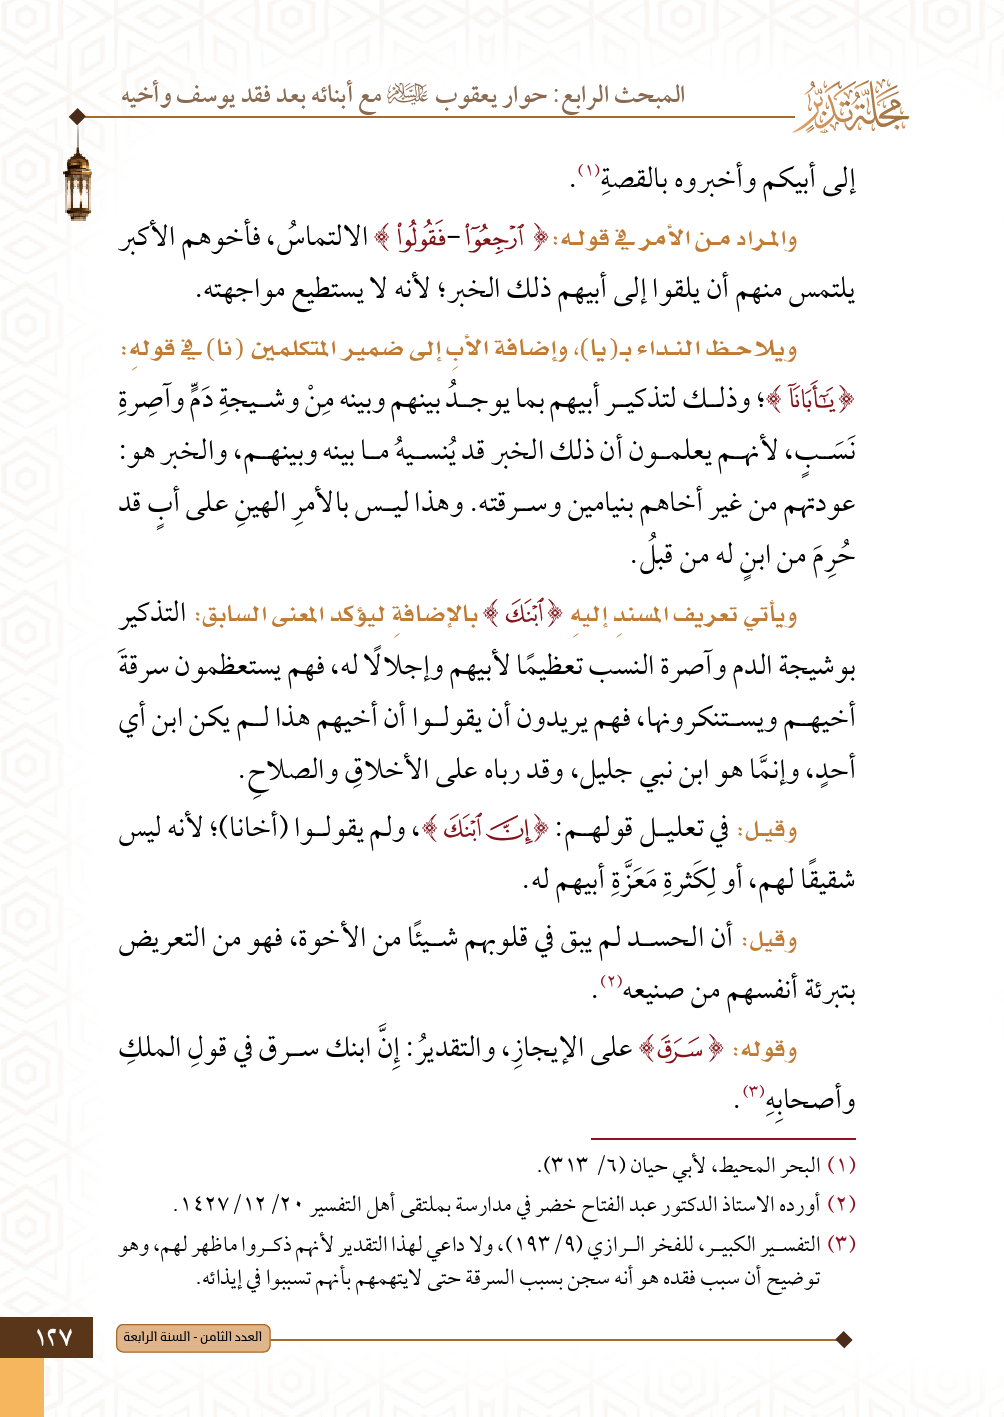 مجلة تدبر
المبحث الرابع: حوار يعقوب عليه السلام مع أبنائه بعد فقد يوسف وأخيه
إلى أبيكم وأخبروه بالقصةِ(١).
والمراد من الأمر في قوله: ﴿ ٱرۡجِعُوٓاْ –فَقُولُواْ ﴾ الالتماسُ، فأخوهم الأكبر
يلتمس منهم أن يلقوا إلى أبيهم ذلك الخبر؛ لأنه لا يستطيع مواجهته.
ويلاحظ النداء بـ(يا)، وإضافة الأبِ إلى ضمير المتكلمين (نا) في قولهِ:
﴿ يَـٰٓأَبَانَآ ﴾؛ وذلك لتذكير أبيهم بما يوجدُ بينهم وبينه مِنْ وشيجةِ دَمٍّ وآصِرةِ
نَسَبٍ، لأنهم يعلمون أن ذلك الخبر قد يُنسيهُ ما بينه وبينهم، والخبر هو:
عودتهم من غير أخاهم بنيامين وسرقته. وهذا ليس بالأمرِ الهينِ على أبٍ قد
حُرِمَ من ابنٍ له من قبلُ.
ويأتي تعريف المسندِ إليهِ ﴿ ٱبۡنَكَ ﴾ بالإضافةِ ليؤكد المعنى السابق: التذكير
بوشيجة الدم وآصرة النسب تعظيمًا لأبيهم وإجلالًا له، فهم يستعظمون سرقةَ
أخيهم ويستنكرونها، فهم يريدون أن يقولوا أن أخيهم هذا لم يكن ابن أي
أحدٍ، وإنمَّا هو ابن نبي جليل، وقد رباه على الأخلاقِ والصلاحِ.
وقيل: في تعليل قولهم: ﴿ إِنَّ ٱبۡنَكَ ﴾، ولم يقولوا (أخانا)؛ لأنه ليس
شقيقًا لهم، أو لِكَثرةِ مَعَزَّةِ أبيهم له.
وقيل: أن الحسد لم يبق في قلوبهم شيئًا من الأخوة، فهو من التعريض
بتبرئة أنفسهم من صنيعه(٢).
وقوله: ﴿ سَرَقَ﴾ على الإيجازِ، والتقديرُ: إِنَّ ابنك سرق في قولِ الملكِ
وأصحابِهِ(٣).
(١) البحر المحيط، لأبي حيان (٦/ ٣١٣).
(٢) أورده الاستاذ الدكتور عبد الفتاح خضر في مدارسة بملتقى أهل التفسير ٢٠/ ١٢/ ١٤٢٧.
(٣) التفسير الكبير، للفخر الرازي (٩/ ١٩٣)، ولا داعي لهذا التقدير لأنهم ذكروا ماظهر لهم، وهو
توضيح أن سبب فقده هو أنه سجن بسبب السرقة حتى لايتهمهم بأنهم تسببوا في إيذائه.
العدد الثامن - السنة الرابعة
١٢٧